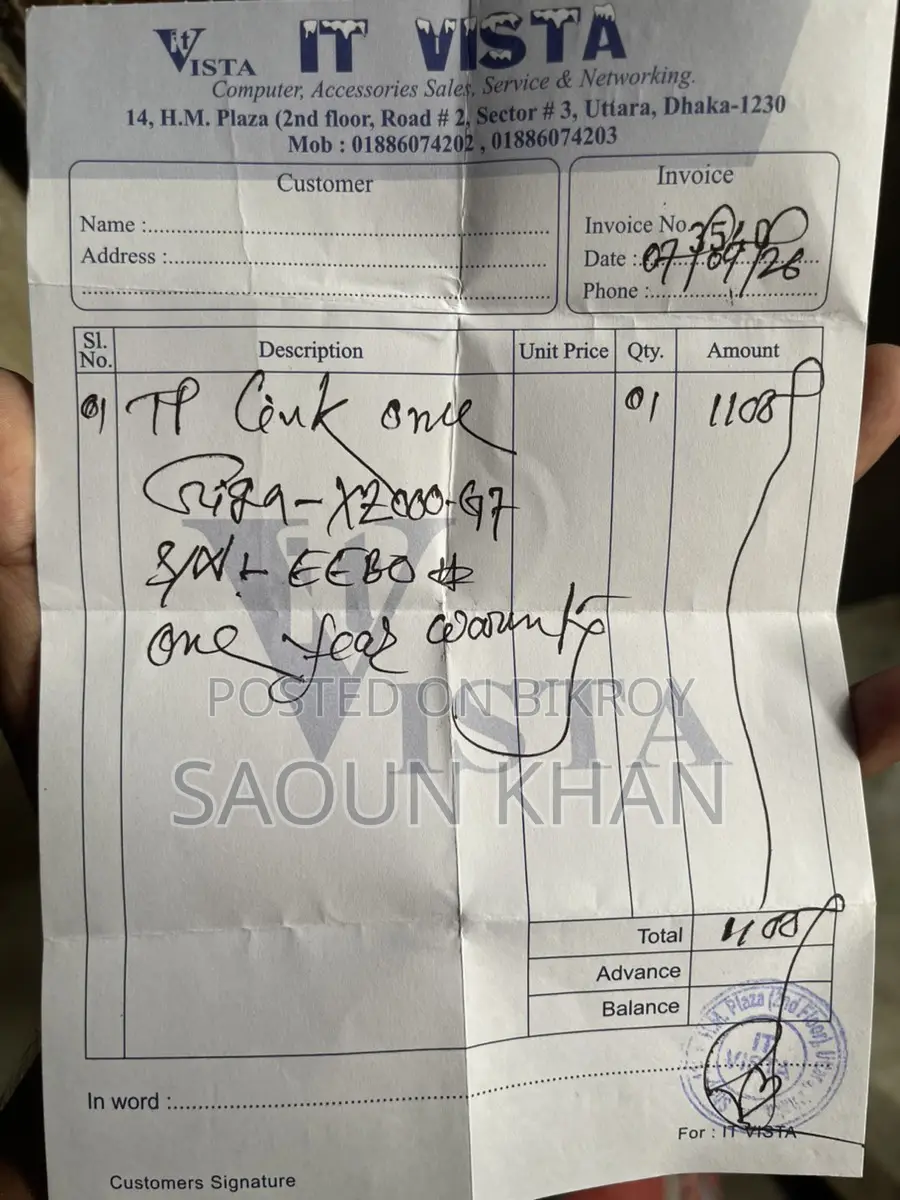 it VISTA
IT VISTA
Computer, Accessories Sales, Service & Networking.
14, H.M. Plaza (2nd floor, Road # 2, Sector # 3, Uttara, Dhaka-1230
Mob : 01886074202 , 01886074203
Customer
Name :
Address :
Invoice
Invoice No. 3540
Date : 07/04/26
Phone :
Sl. No. Description Unit Price Qty. Amount
01 TP Link one 01 1108
-XZ000-G7
S/N: EEBO
one year
it VISTA
POSTED ON BIKROY
SAOUN KHAN
Total 1100
Advance
Balance
H.M. Plaza (2nd Floor), Uttar
IT VISTA
In word :
For : IT VISTA
Customers Signature